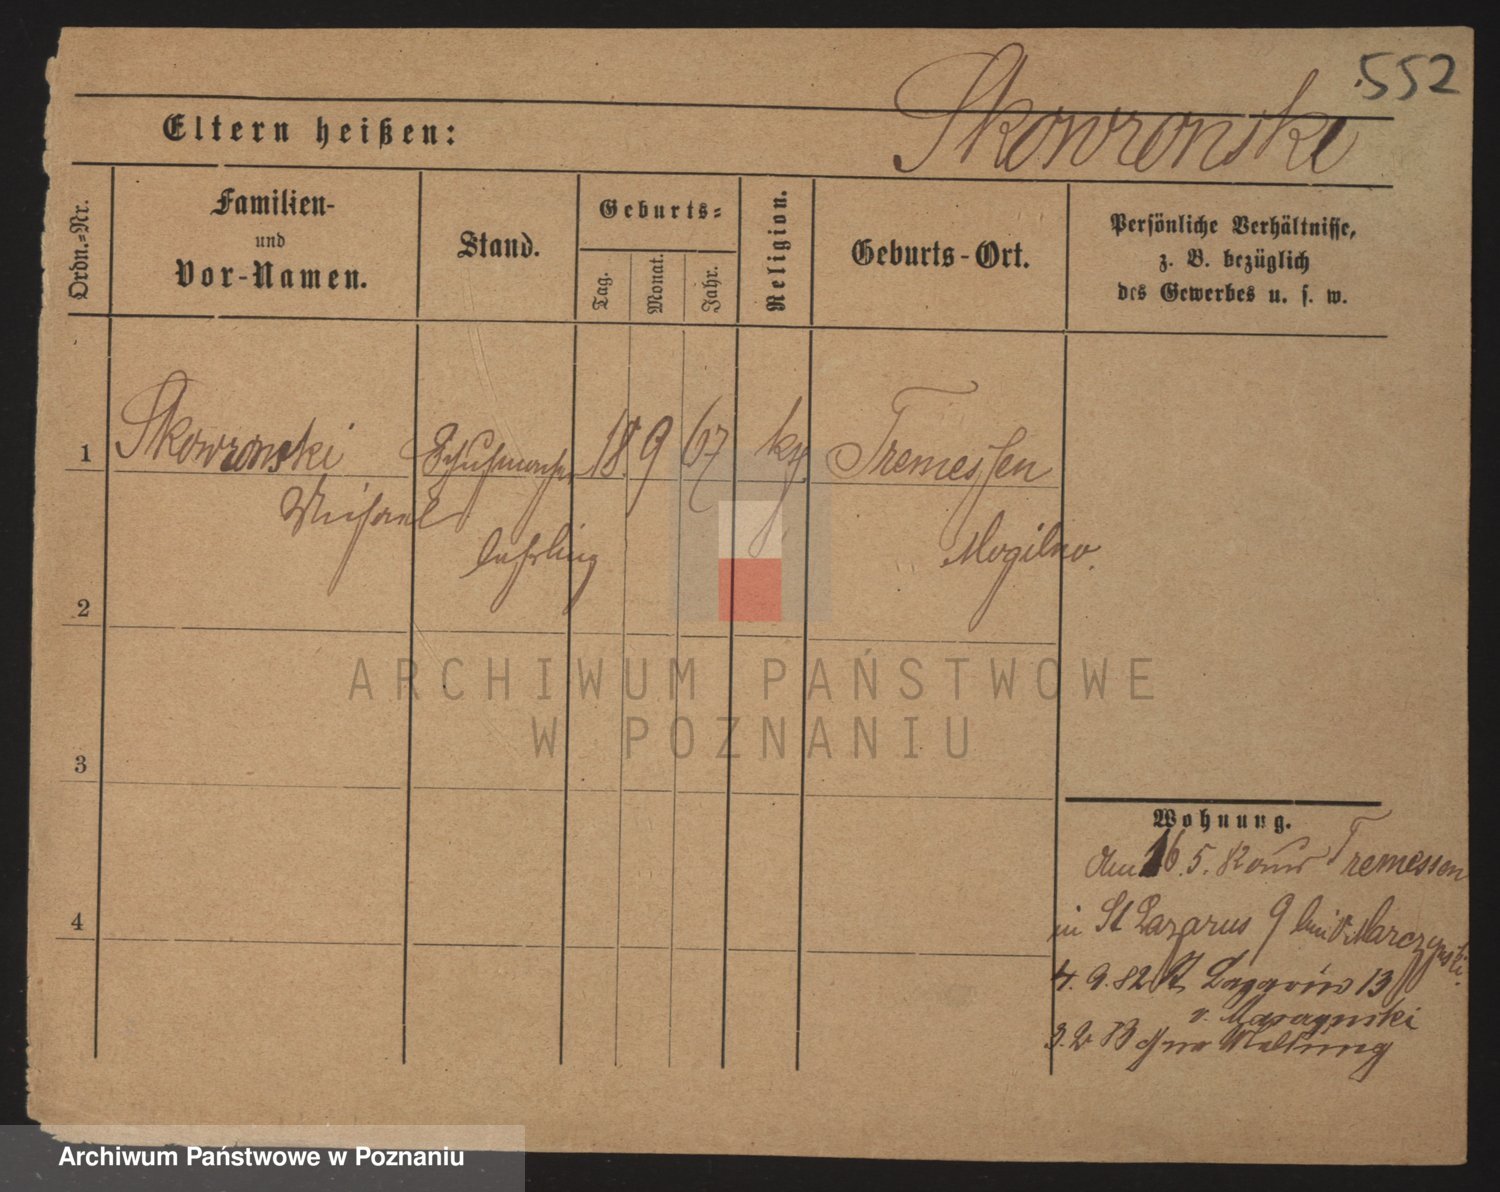 552
Skowronski
Eltern heißen:
Ordn.=Nr.
Familien-
und
Vor-Namen.
Stand.
Geburts=
Tag.
Monat.
Jahr.
Religion.
Geburts-Ort.
Persönliche Verhältnisse,
z. B. bezüglich
des Gewerbes u. s. w.
1
Skowronski
Schuhmacher
18 9 67
Tremessen
Michael
lehrling
Mogilno.
2
ARCHIWUM PAŃSTWOWE
W POZNANIU
3
Wohnung.
Am 16.5. Tremessen
4
in St Lazarus 9 bei Marczynski.
4.9.82 St 13
3.2
Archiwum Państwowe w Poznaniu